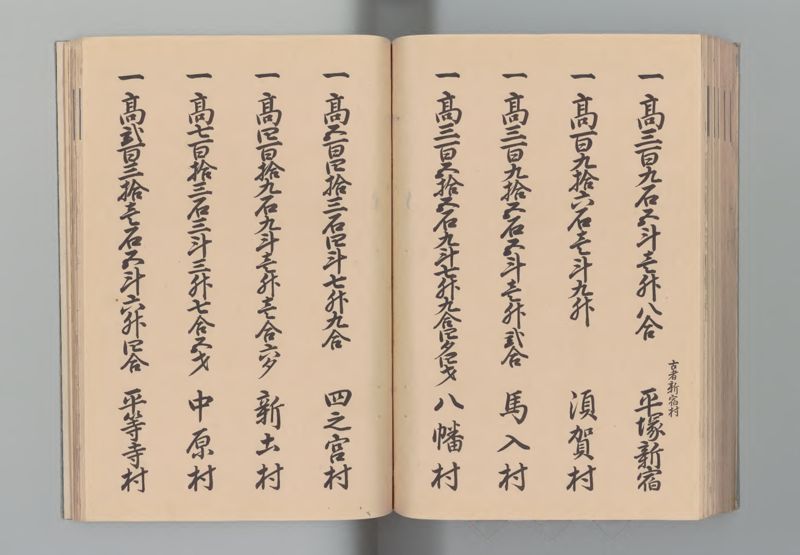 一高三百九石五斗壱升八合 古者新宿村 平塚新宿
一高百九拾六石壱斗九升 須賀村
一高三百九拾五石五斗壱升弐合 馬入村
一高三百五拾五石九斗七升九合四夕四才 八幡村
一高五百四拾三石四斗七升九合 四之宮村
一高四百拾九石九斗壱升壱合六夕 新土村
一高七百拾三石三斗三升七合五才 中原村
一高弐百三拾壱石五斗六升四合 平等寺村